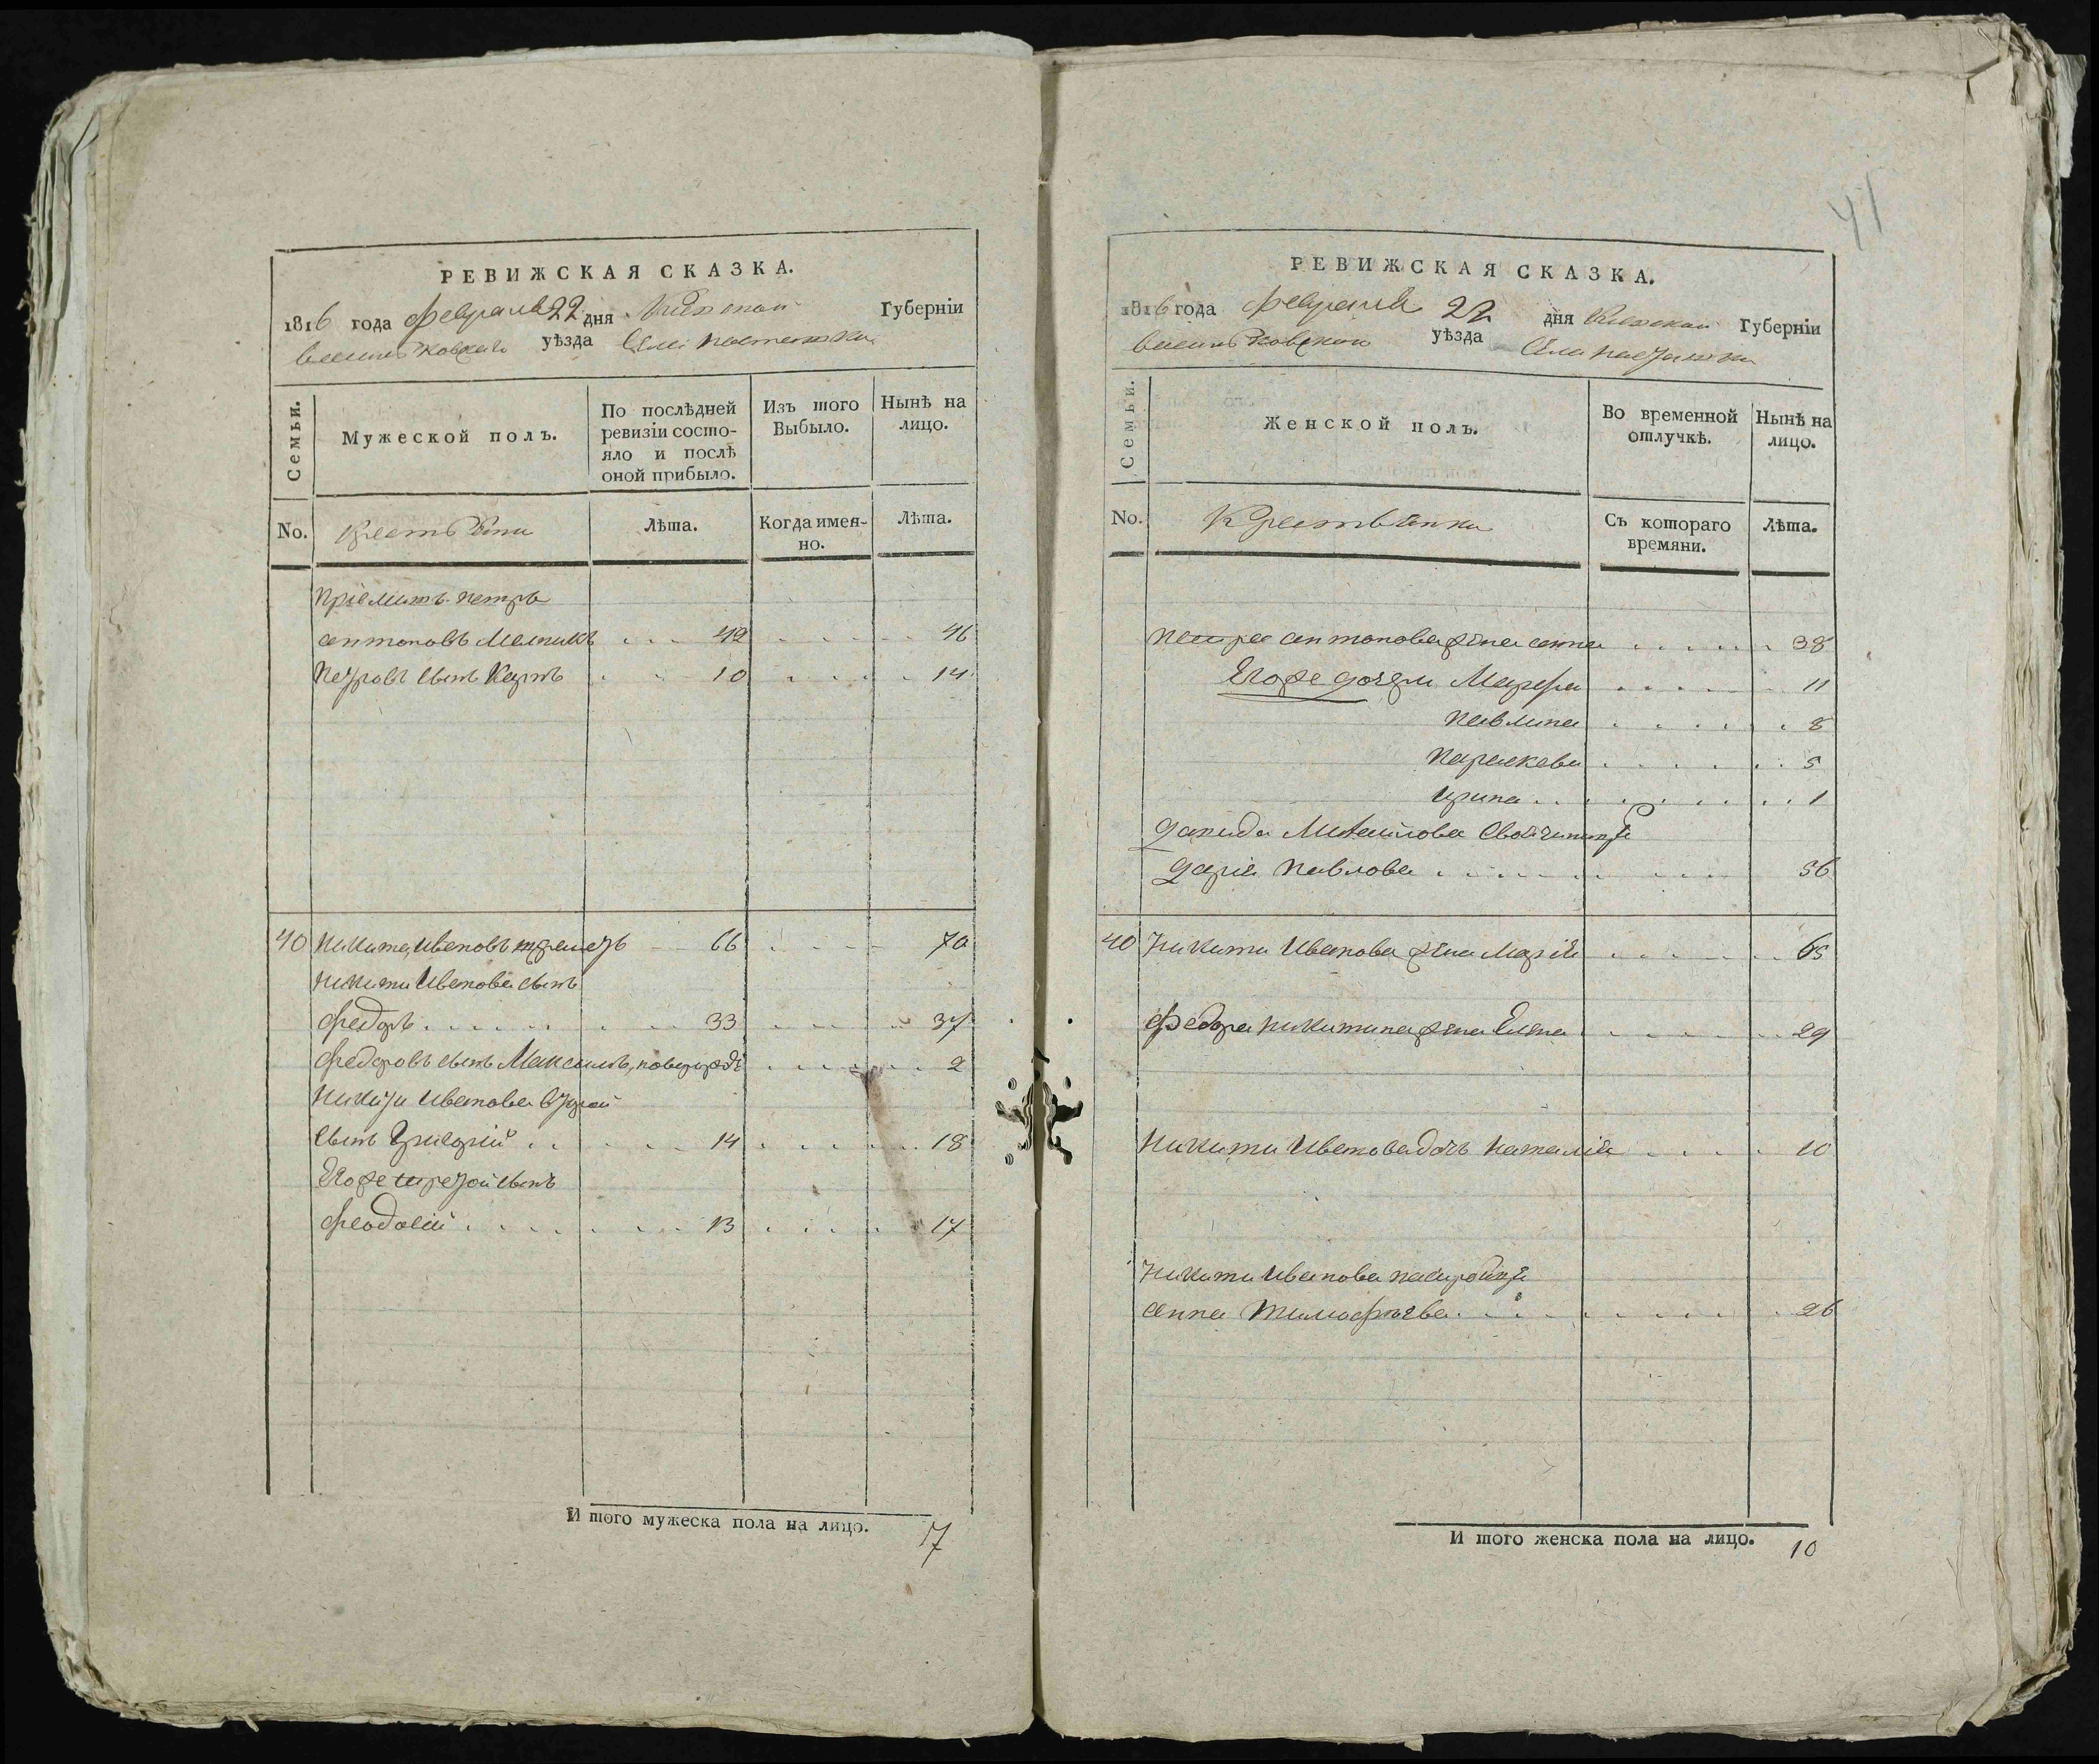 РЕВИЖСКАЯ СКАЗКА.
1816 года февраля 22 дня Киевской Губерніи
васильковскаго уѣзда Села
Семьи.
Мужеской полъ.
По послѣдней ревизіи состояло и послѣ оной прибыло.
Изъ того Выбыло.
Нынѣ на лицо.
No.
Крестьяни
Лѣта.
Когда именно.
Лѣта.
Пріемитъ петръ
антоновъ Мелникъ 42 46
Петровъ сынъ Карпъ 10 14
40 Никита Ивановъ 66 70
Никити Иванова сынъ
федоръ 33 37
федоровъ сынъ Максимъ, 2
Никити Иванова второй
сынъ Григорій 14 18
Егоже третой сынъ
феодосій 13 17
И того мужеска пола на лицо. 7
41
РЕВИЖСКАЯ СКАЗКА.
1816 года февраля 22 дня Киевской Губерніи
васильковской уѣзда Села
Семьи.
Женской полъ.
Во временной отлучкѣ.
Нынѣ на лицо.
No.
Крестьянки
Съ котораго времяни.
Лѣта.
Петра антонова жена анна 38
Егоже дочери Марфа 11
Павлина 8
Параскева 5
Ирина 1
Данида Михайлова
дарія Павлова 56
40 Никити Иванова жена Марія 65
Федора никитина жена Елена 29
Никити Иванова дочь наталія 10
Никити Иванова
анна Тимофѣева 26
И того женска пола на лицо. 10